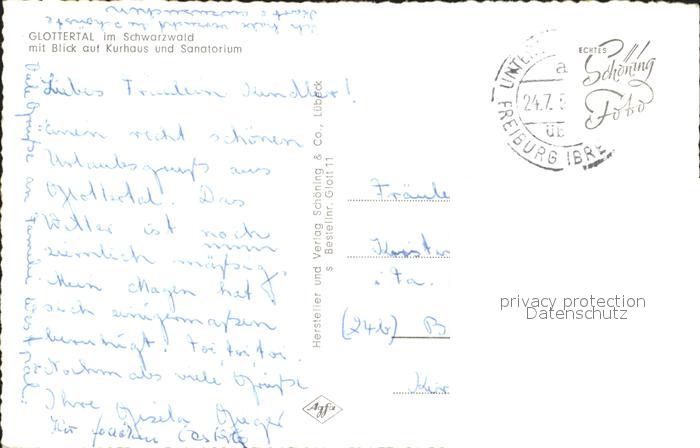 GLOTTERTAL im Schwarzwald
mit Blick auf Kurhaus und Sanatorium
Liebes Fräulein Kundler!
Einen recht schönen
Urlaubsgruß aus
Glottertal. Das
Wetter ist noch
ziemlich mäßig.
Mein Magen hat
sich einigermaßen
beruhigt. Toi toi toi.
Nochmals viele Grüße
Ihre Gisela
Viele Grüße an Familie
Hersteller und Verlag Schöning & Co., Lübeck
s Bestellnr. Glott 11
Agfa
ECHTES
Schöning
Foto
a
24.7.5
üb
FREIBURG (BRE
Fräule
(24b) B
privacy protection
Datenschutz